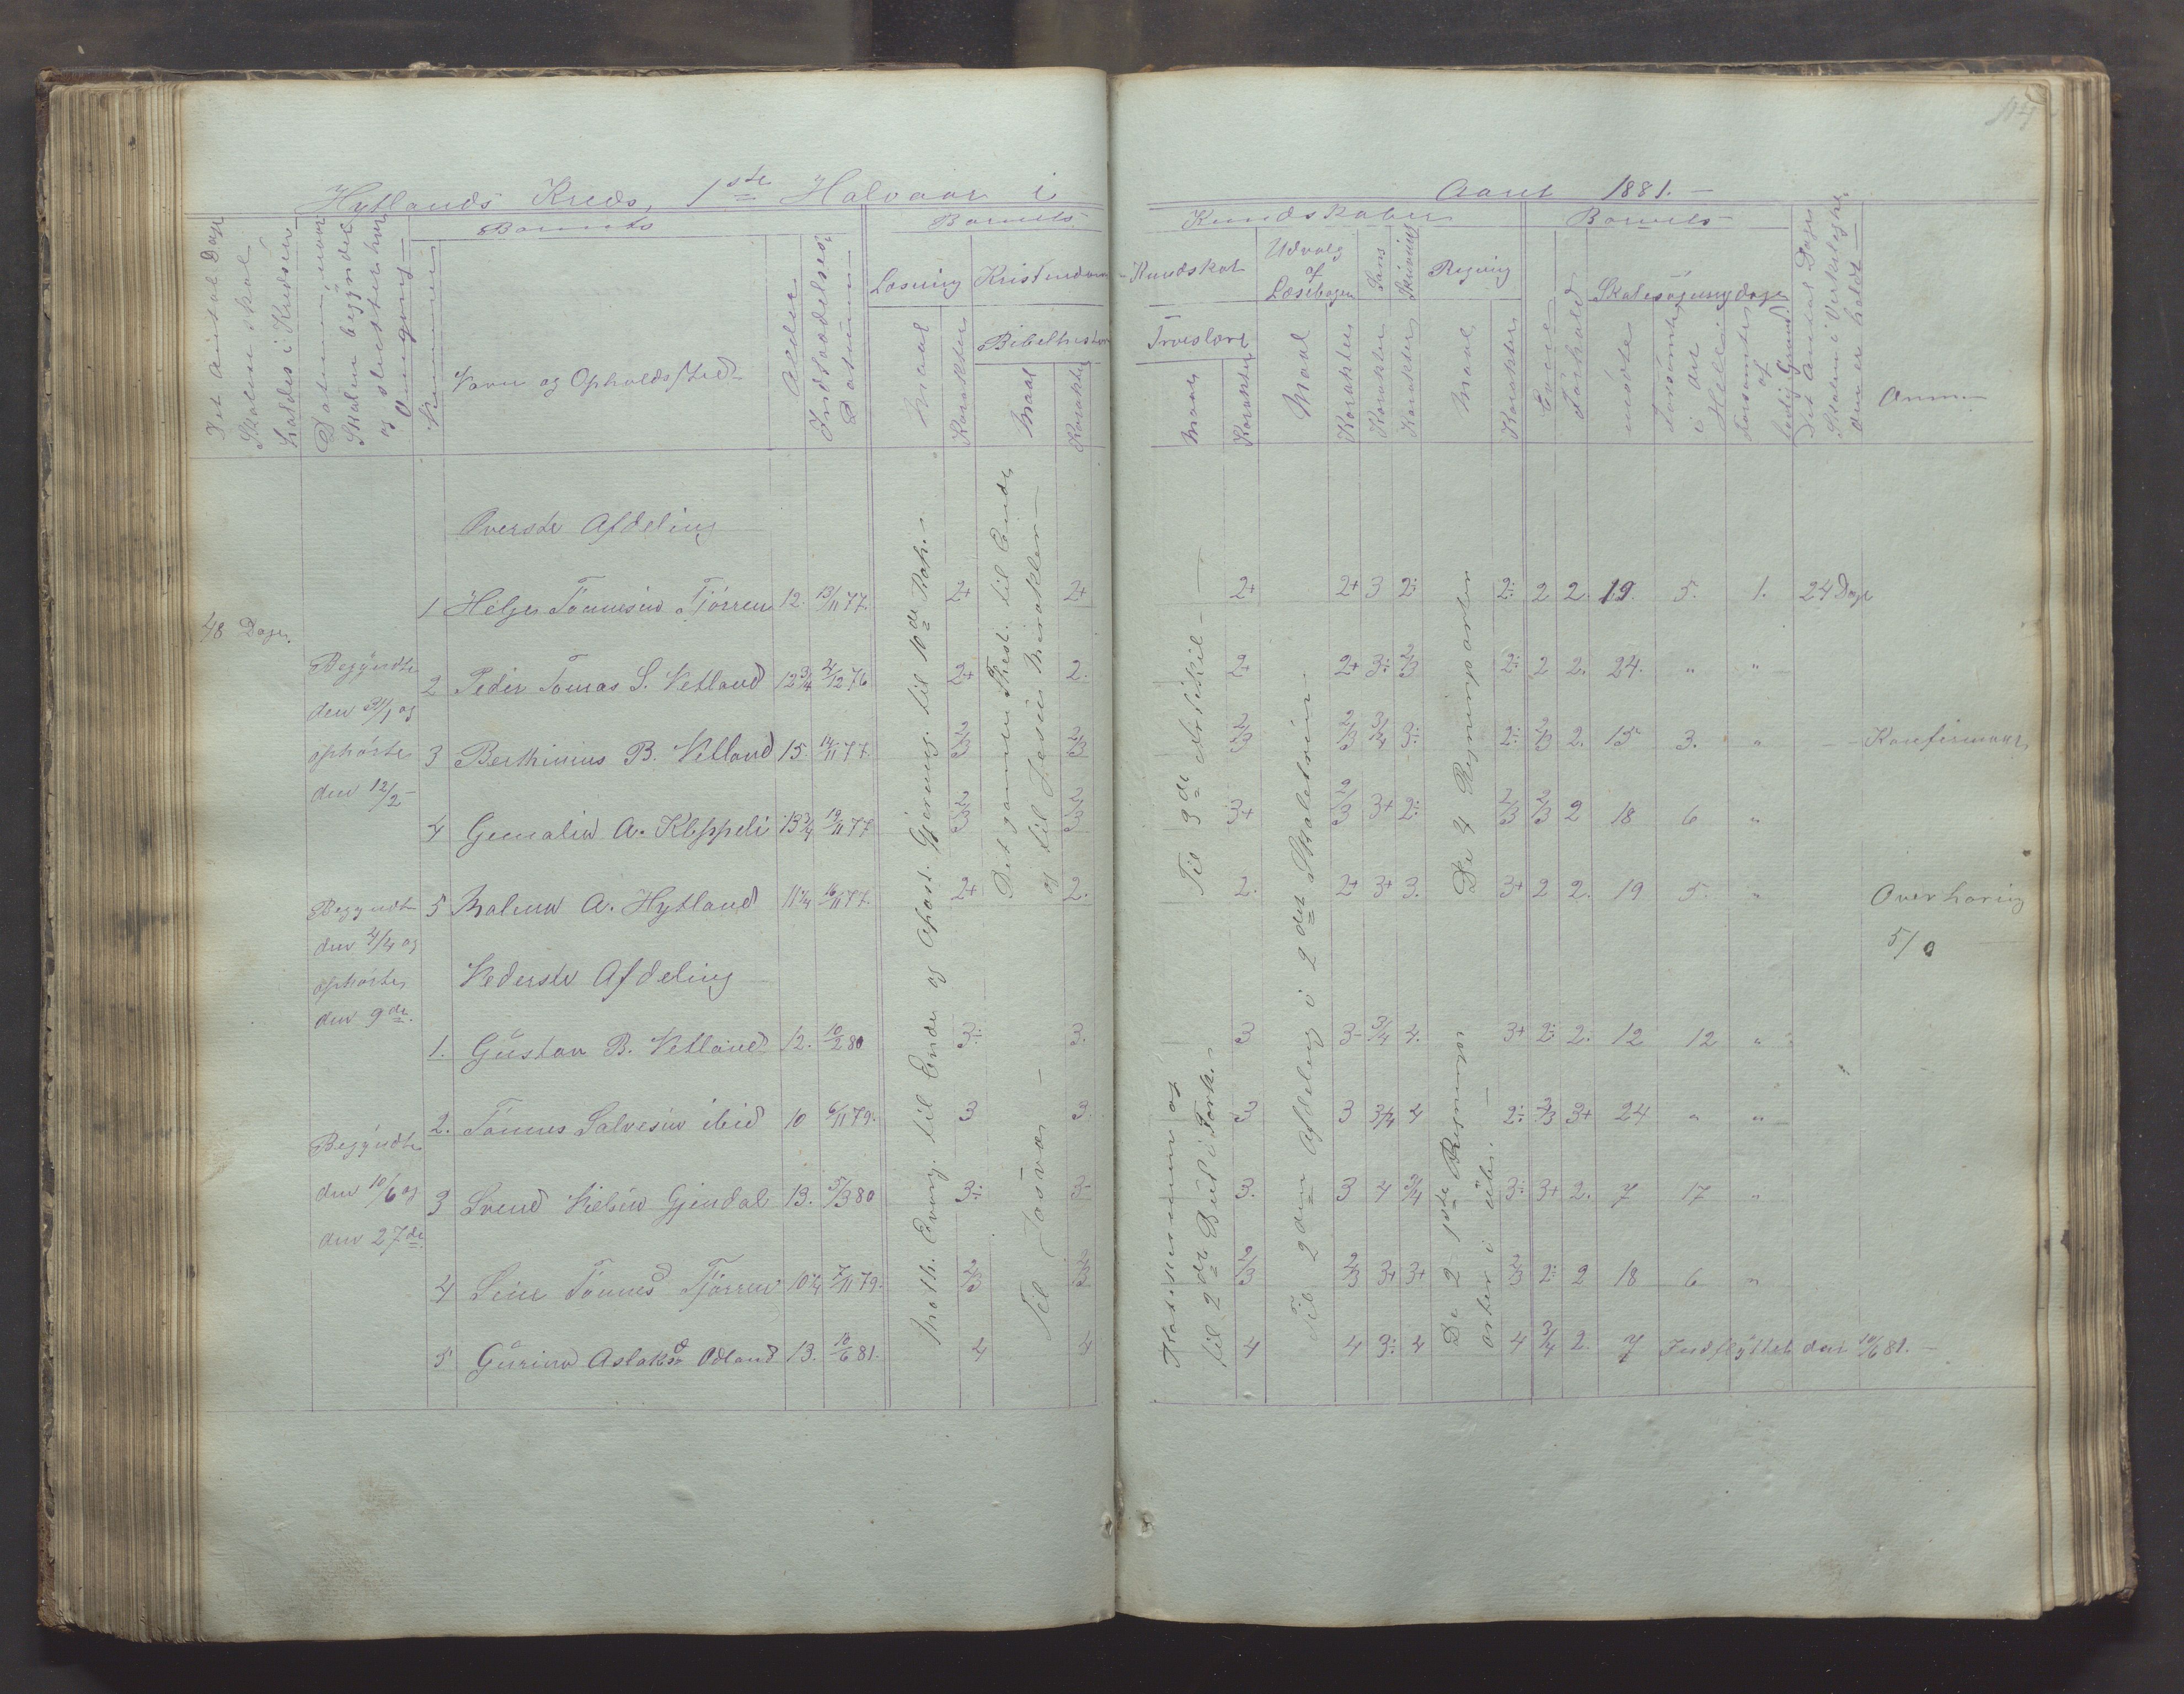 Hytlands Kreds, 1ste Halvaar i Aaret 1881.
Det Antal Dage
Skolen skal
holdes i Kredsen
Datum naar
Skolen begyndte
og sluttet hver
Omgang
Nummer
Barnets
Navn og Opholdssted
Alder
Indtrædelses
Datum
Barnets
Læsning
Maal
Karakter
Kristendom
Bibelhistorie
Maal
Karakter
Kundskaber
Kundskab
Troeslære
Maal
Karakter
Udvalg
af
Læsebogen
Maal
Karakter
Sang
Karakter
Skrivning
Karakter
Regning
Maal
Karakter
Barnets
Evne
Forhold
Skolesøgningsdage
mødte
forsømte
i det
Hele
forsømte
af
lovlig Grund
Det Antal Dage
Skolen i Virkeligheden
er holdt
Anm
48 Dage.
Begyndte
den 31/1 og
ophørte
den 12/2
Begyndte
den 4/4 og
ophørte
den 9de
Begyndte
den 10/6 og
den 27de
Øverste Afdeling
1 Helge Tønnesen Tjørren 12. 13/11 77. 2+ 2+ 2+ 2+ 3 2: 2: 2 2. 19. 5. 1. 24 Dage
2 Peder Tomas S. Vetland 12 3/4 4/12 76 2+ 2. 2+ 2+ 3: 2/3 2: 2 2. 24. " "
3 Berthinius B. Vetland 15. 14/11 77. 2/3 2/3 2/3 2/3 3/4 3: 2: 2/3 2. 15 3. " Konfirmeret
4 Gemalie A. Kleppeli 13 3/4 19/11 77 2/3 2/3 3+ 2/3 3+ 2: 2/3 2/3 2 18 6 "
5 Malene A. Hytland 11 1/4 16/11 77. 2+ 2. 2. 2+ 3+ 3. 3+ 2 2. 19 5 " Overhøring
5/0
Nederste Afdeling
1. Gustav B. Vetland 12. 10/2 80 3: 3. 3 3- 3/4 4. 3+ 2: 2. 12 12 "
2. Tønnes Salvesen ibid 10 6/11 79. 3 3. 3 3 3/4 4 2: 2/3 3+ 24 " "
3 Svend Nielsen Gjendal 13. 5/3 80 3: 3- 3. 3 4 3/4 3: 3+ 2. 7 17 "
4 Sine Tønnesd Tjørren 10 1/4 7/11 79. 2/3 2/3 2/3 2/3 3+ 3+ 2/3 2: 2 18 6 "
5 Gurine Aslaksd Odland 13. 10/6 81. 4 4 4 4 3: 4 4 3/4 2. 7 Indflyttet den 10/6 81.
Math. Evang. til Ende og Apost. Gjerning. til 10de Kap.
Det gamle Test. til Ende
og til Jesu Mirakler
Til Josva
Til 3de Artikel
Katekismen og
til 2det Bud i Fork.
Til 2den Afdeling i 2det Skoletrin.
De 4 Regningsarter
De 2 1ste Regnings
arter i ube.